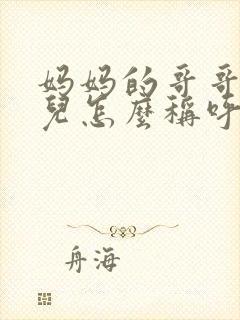 妈妈的哥哥
兒怎麼稱呼
舟海